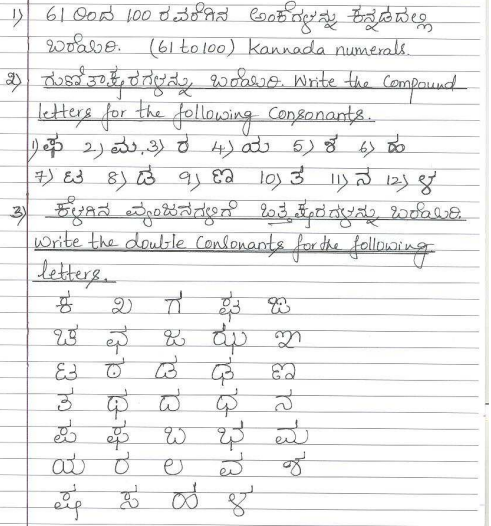 1) 61 ರಿಂದ 100 ರವರೆಗಿನ ಅಂಕೆಗಳನ್ನು ಕನ್ನಡದಲ್ಲಿ
ಬರೆಯಿರಿ. (61 to 100) Kannada numerals.
2) ಗುಣಿತಾಕ್ಷರಗಳನ್ನು ಬರೆಯಿರಿ. Write the Compound
letters for the following Consonants.
1) ಫ 2) ಮ, 3) ರ 4) ಯ 5) ಶ 6) ಹ
7) ಟ 8) ಡ 9) ಣ 10) ತ 11) ನ 12) ಳ
3) ಕೆಳಗಿನ ವ್ಯಂಜನಗಳಿಗೆ ಒತ್ತಕ್ಷರಗಳನ್ನು ಬರೆಯಿರಿ.
Write the double Consonants for the following
letters.
ಕ ಖ ಗ ಘ ಙ
ಚ ಛ ಜ ಝ ಞ
ಟ ಠ ಡ ಢ ಣ
ತ ಥ ದ ಧ ನ
ಪ ಫ ಬ ಭ ಮ
ಯ ರ ಲ ವ ಶ
ಷ ಸ ಹ ಳ